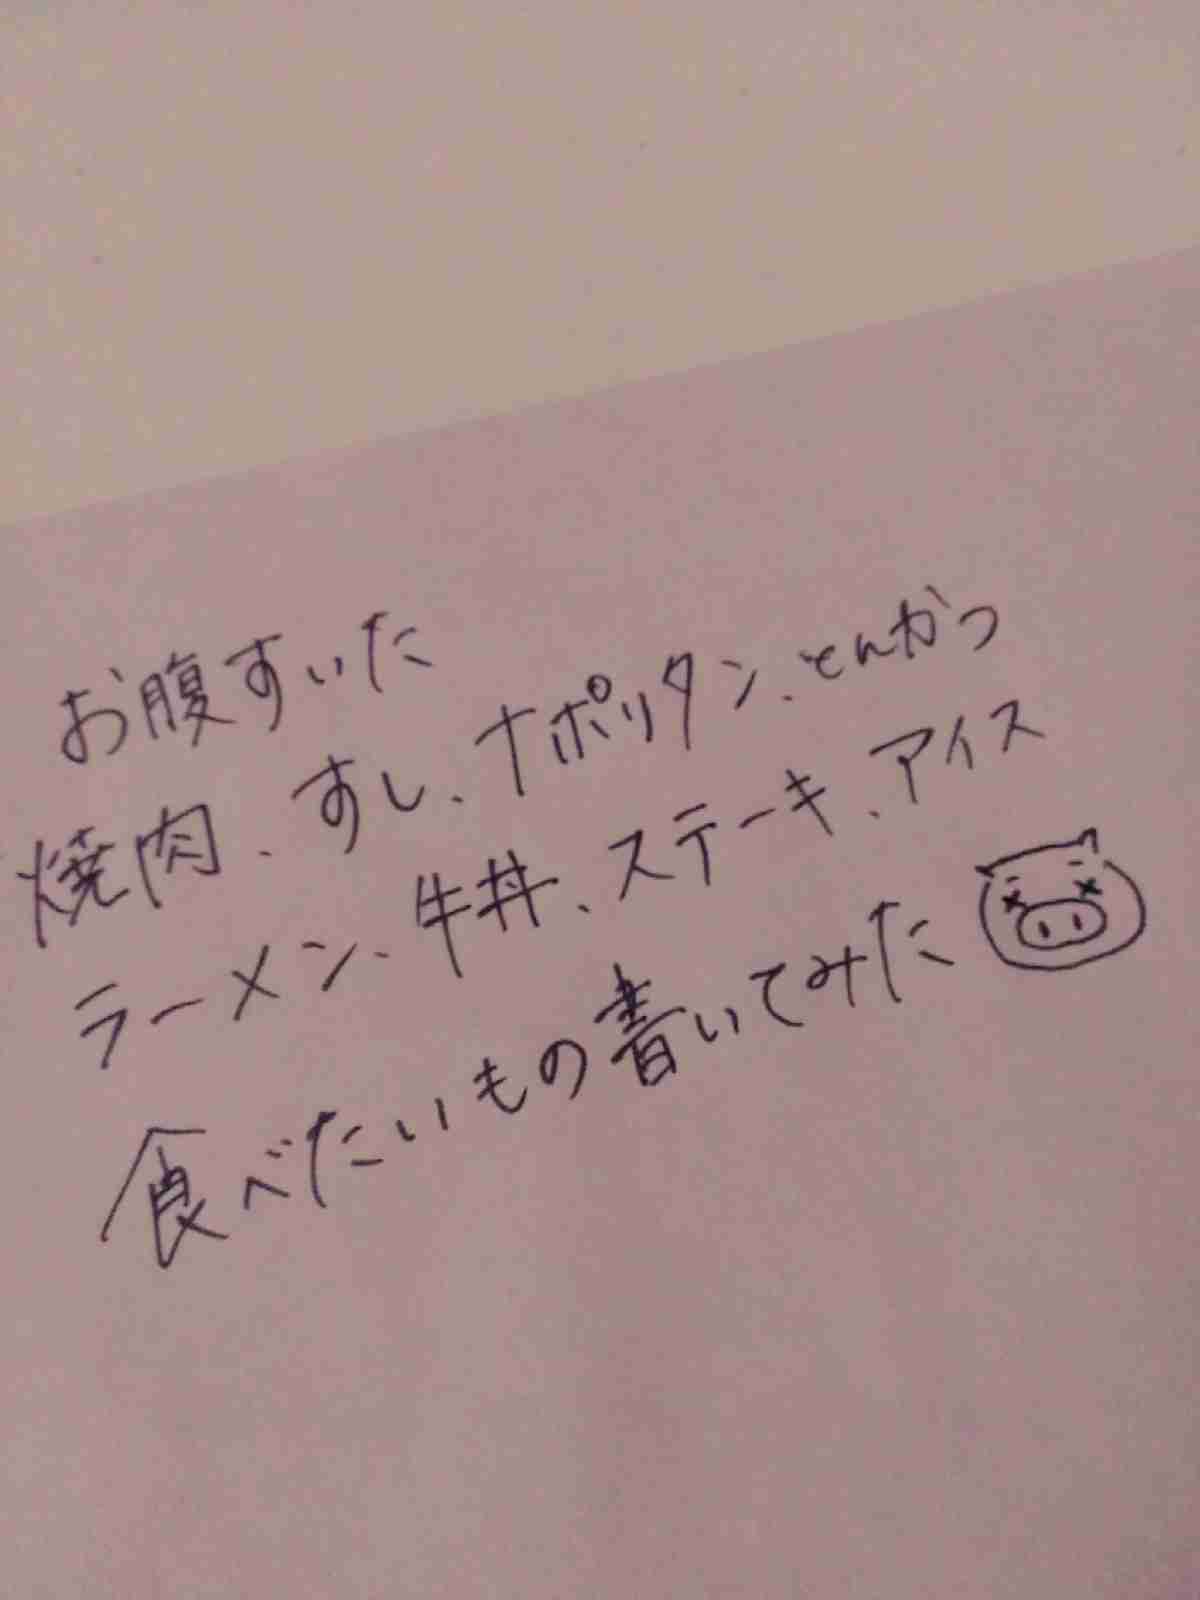 お腹すいた
焼肉、すし、ナポリタン、とんかつ
ラーメン、牛丼、ステーキ、アイス
食べたいもの書いてみた